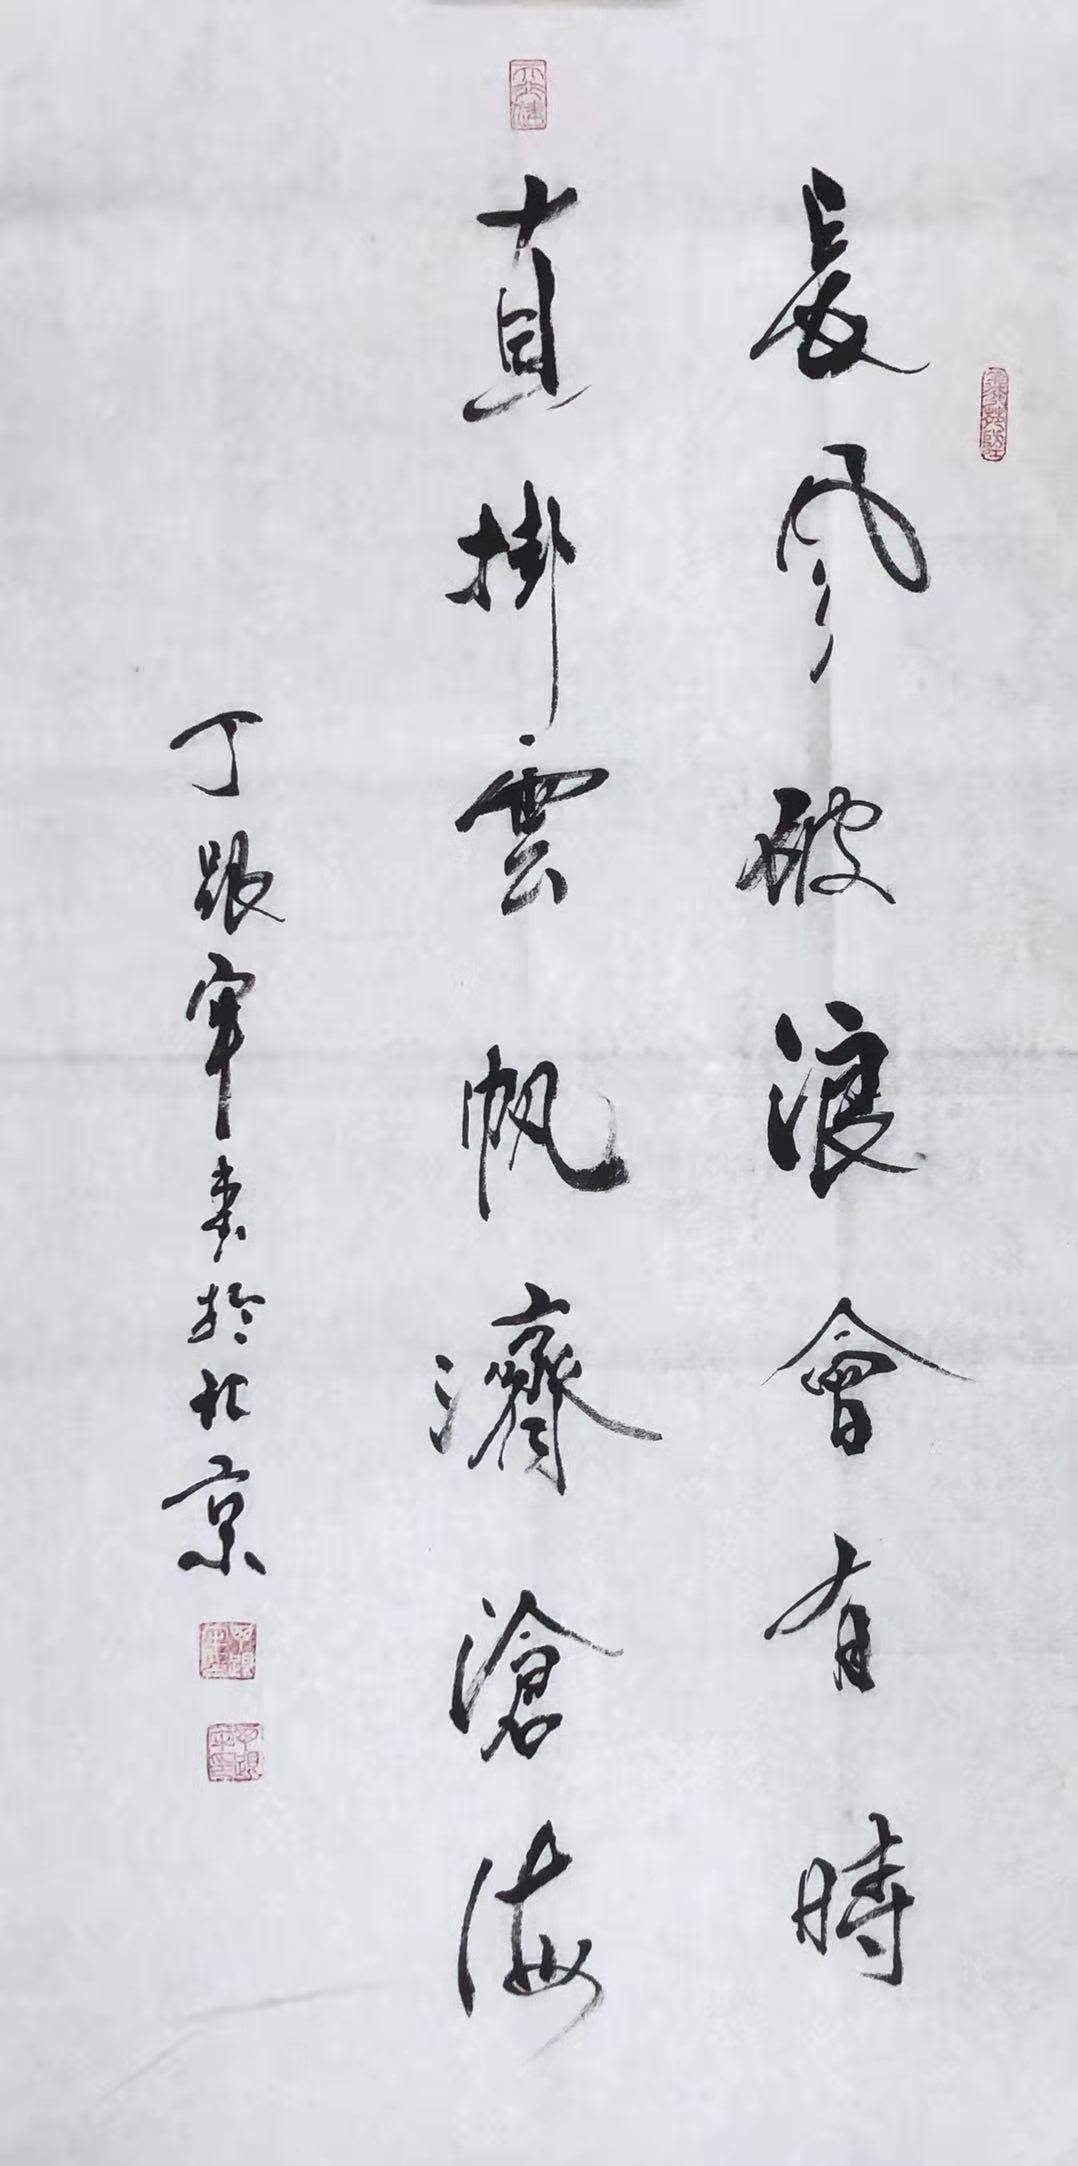 長風破浪會有時
直掛雲帆濟滄海
丁跟軍書於北京